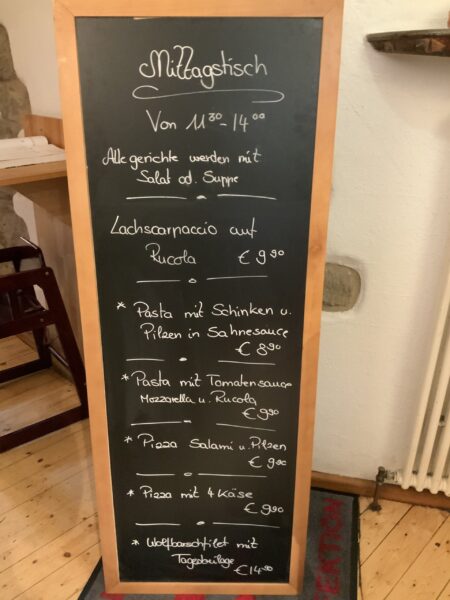 Mittagstisch
Von 11³⁰-14⁰⁰
Alle gerichte werden mit
Salat od. Suppe
Lachscarpaccio auf
Rucola € 9⁹⁰
* Pasta mit Schinken u.
Pilzen in Sahnesauce
€ 8⁹⁰
* Pasta mit Tomatensauce
Mozzarella u. Rucola
€ 9⁹⁰
* Pizza Salami u. Pilzen
€ 9⁹⁰
* Pizza mit 4 Käse
€ 9⁹⁰
* Wolfbarschfilet mit
Tagesbeilage
€ 14⁹⁰